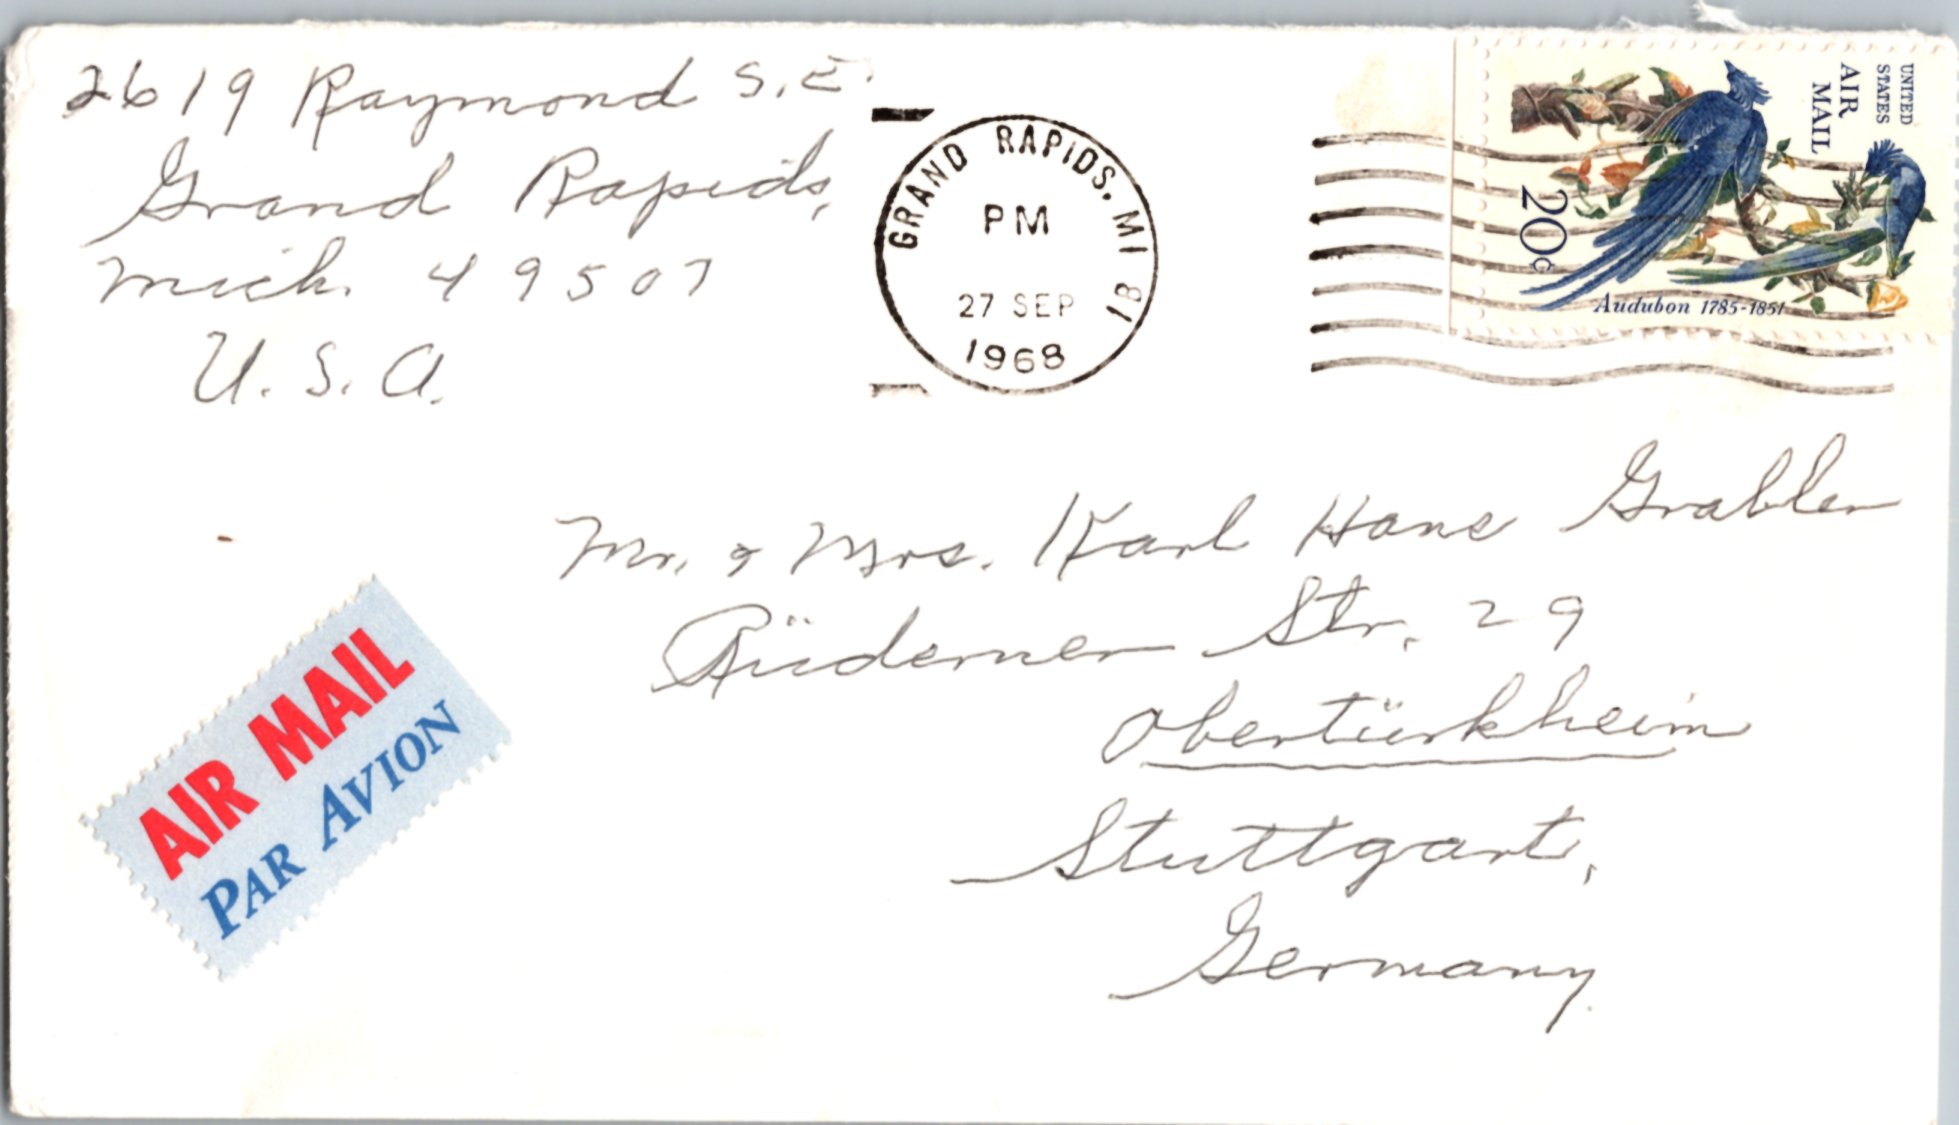 2619 Raymond S.E.
Grand Rapids,
Mich. 49507
U.S.A.
GRAND RAPIDS, MI 18
PM
27 SEP
1968
UNITED
STATES
AIR
MAIL
20c
Audubon 1785-1851
Mr. & Mrs. Karl Hans Grabler
Rüderner Str. 29
Obertürkheim
Stuttgart,
Germany
AIR MAIL
PAR AVION